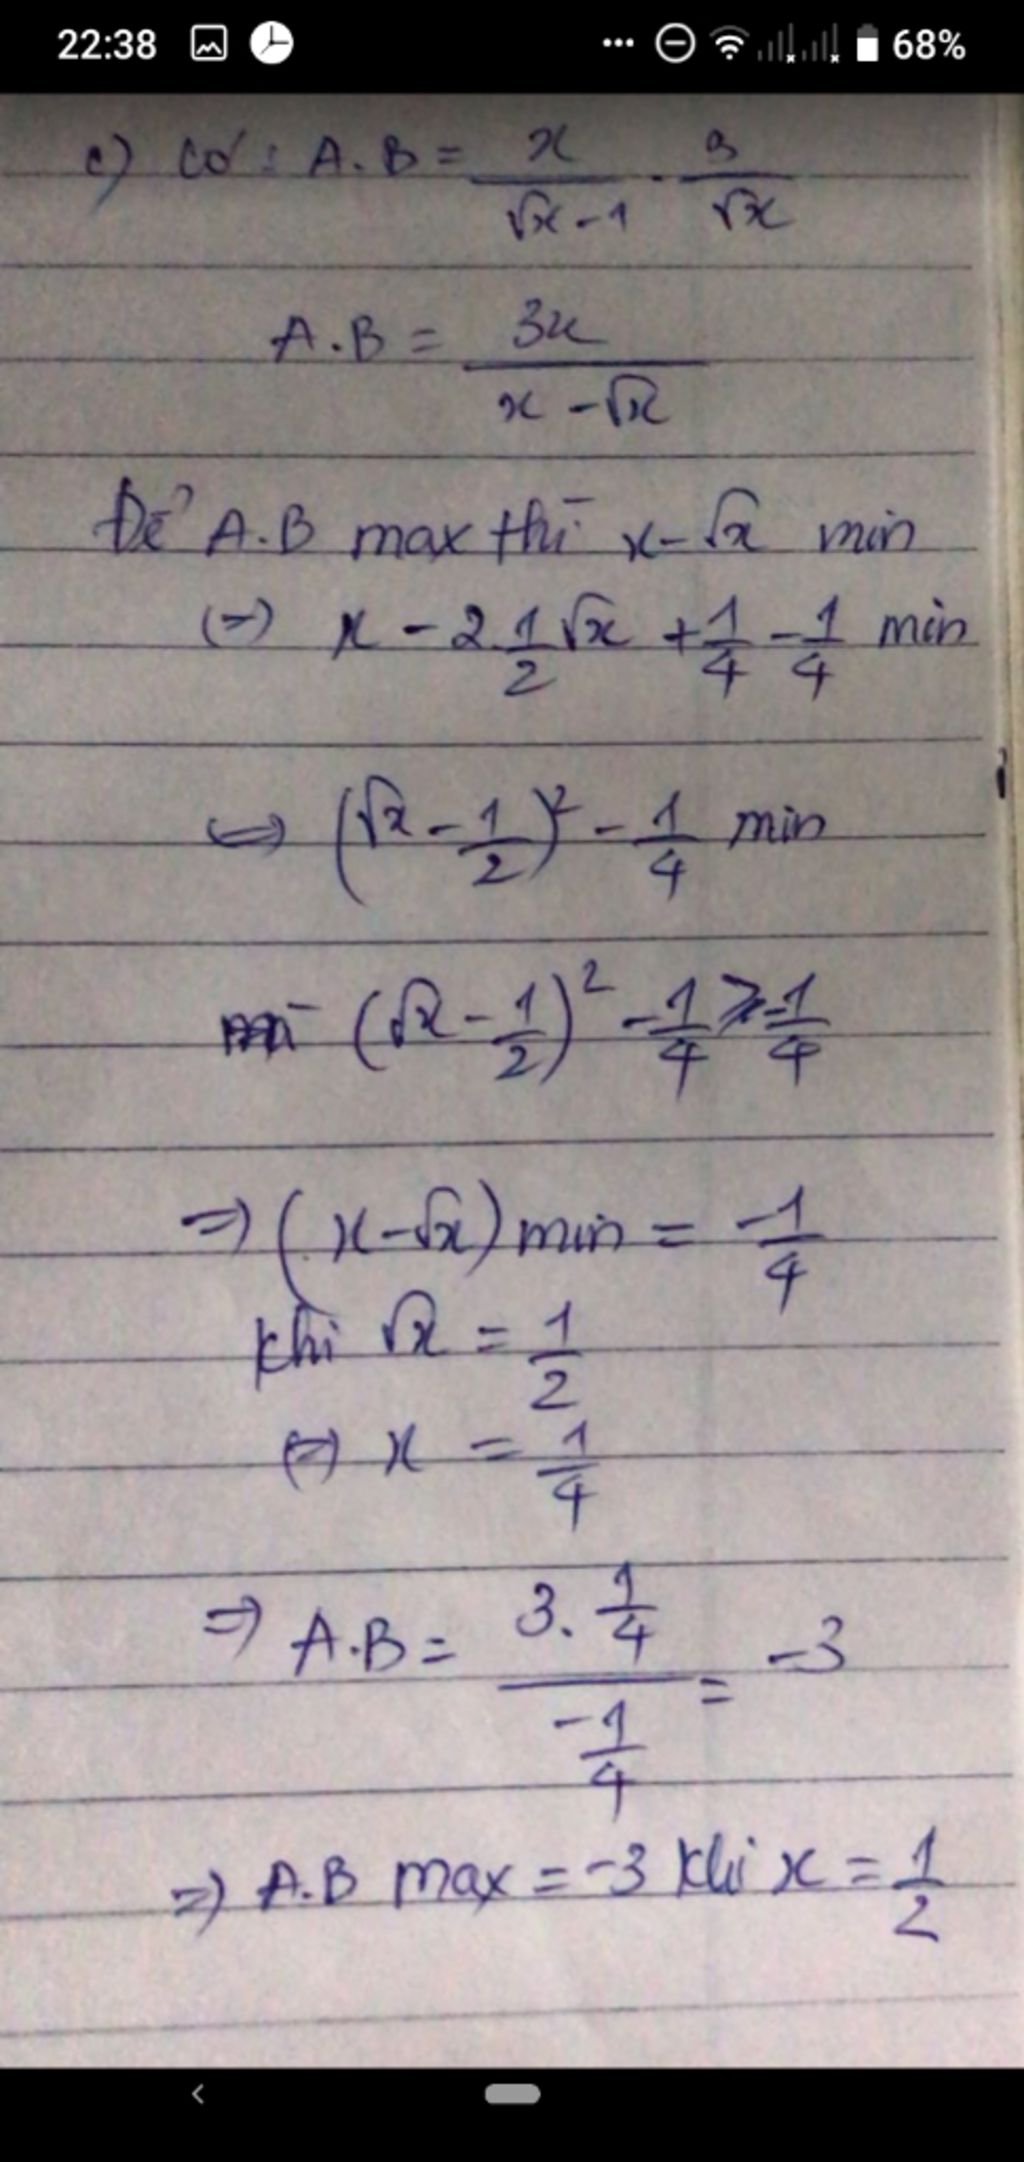 22:38 ... 68%
c) Có : A.B = x/(√x-1) . 3/√x
A.B = 3x/(x-√x)
Để A.B max thì x-√x min
(=) x - 2.1/2√x + 1/4 - 1/4 min
<=> (√x - 1/2)² - 1/4 min
(√x - 1/2)² - 1/4 ≥ -1/4
=> (x-√x) min = -1/4
khi √x = 1/2
(=) x = 1/4
=> A.B = (3.1/4)/(-1/4) = -3
=> A.B max = -3 khi x = 1/2